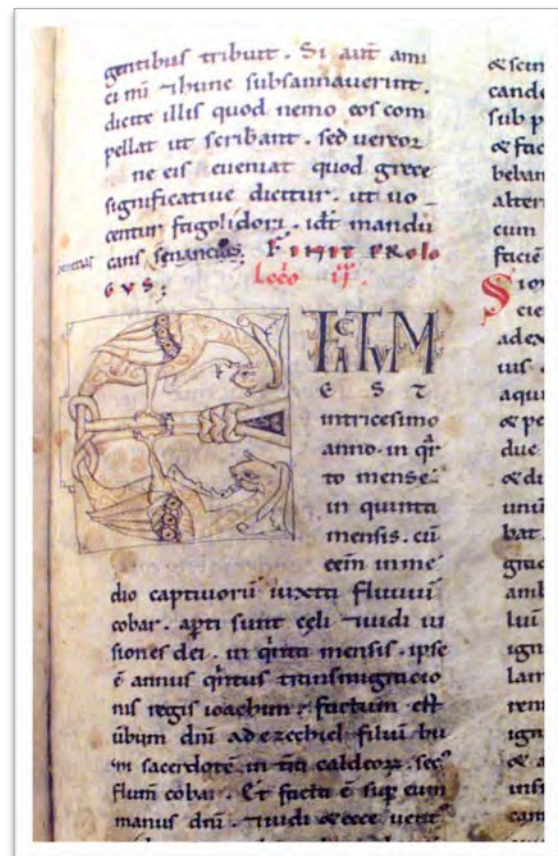 gentibus tribuit. Si aut̄ ami
ci mī ⁊ hunc subsannauerint.
dicite illis quod nemo eos com
pellat ut scribant. sed uereor
ne eis eueniat quod grece
significatiue dicitur. ut uo
centur fagolidori. idē mandu
cans FINIT PROLO
GVS:
ET FACTUM
EST
in tricesimo
anno. in q̄r
to mense.
in quinta
mensis. cū
eēm in me
dio captiuorū iuxta fluuiū
cobar. aꝑti sunt cęli ⁊ uidi ui
siones dei. in q̄nta mensis. ipse
ē annus q̄ntus transmigracio
nis regis ioachim: factum est
ūbum dnī ad ezechiel filiū bu
sacerdotē in caldeoꝝ. sec
flum̄ cobar. Et facta ē suꝑ eum
manus dnī. ⁊ uidi & ecce uent
cande
sub p
& faci
beban
alter
cum
faciē
cie
adex
uis
aqui
& pe
due
& di
unū
bat.
amb
luī
ign
Lam
ign
& a
cam